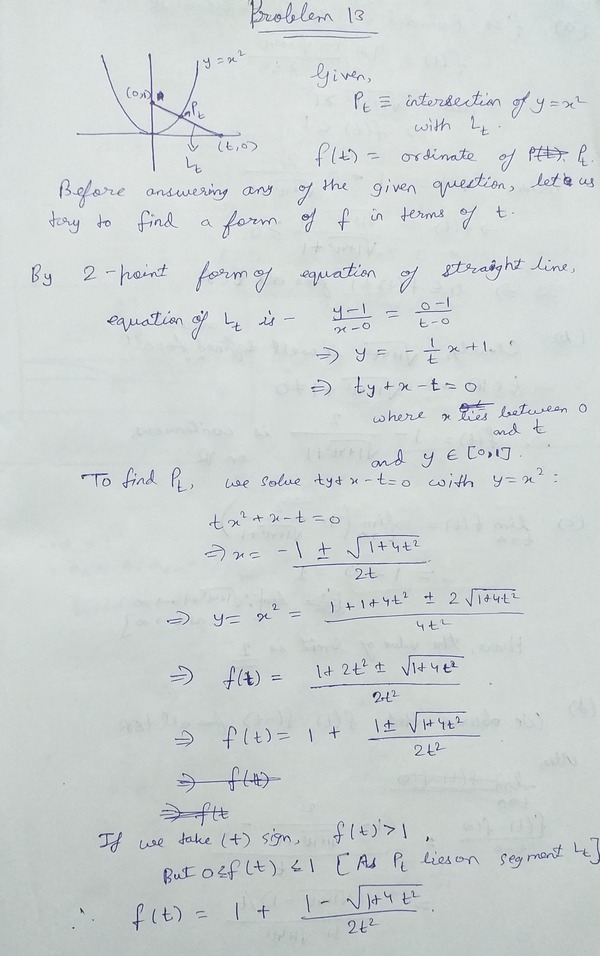 Problem 13
y = x²
(0,1)
P_t
(t,0)
L_t
Given,
P_t ≡ intersection of y = x²
with L_t.
f(t) = ordinate of P_t.
Before answering any of the given question, let us
try to find a form of f in terms of t.
By 2-point form of equation of straight line,
equation of L_t is - (y-1)/(x-0) = (0-1)/(t-0)
⇒ y = -(1/t) x + 1.
⇒ ty + x - t = 0
where x lies between 0
and t
and y ∈ [0,1].
To find P_t, we solve ty + x - t = 0 with y = x² :
tx² + x - t = 0
⇒ x = (-1 ± √(1+4t²))/(2t)
⇒ y = x² = (1 + 1 + 4t² ± 2√(1+4t²))/(4t²)
⇒ f(t) = (1 + 2t² ± √(1+4t²))/(2t²)
⇒ f(t) = 1 + (1 ± √(1+4t²))/(2t²)
⇒ f(t)
⇒ f(t
If we take (+) sign, f(t) > 1,
But 0 ≤ f(t) ≤ 1 [As P_t lies on segment L_t]
∴ f(t) = 1 + (1 - √(1+4t²))/(2t²).